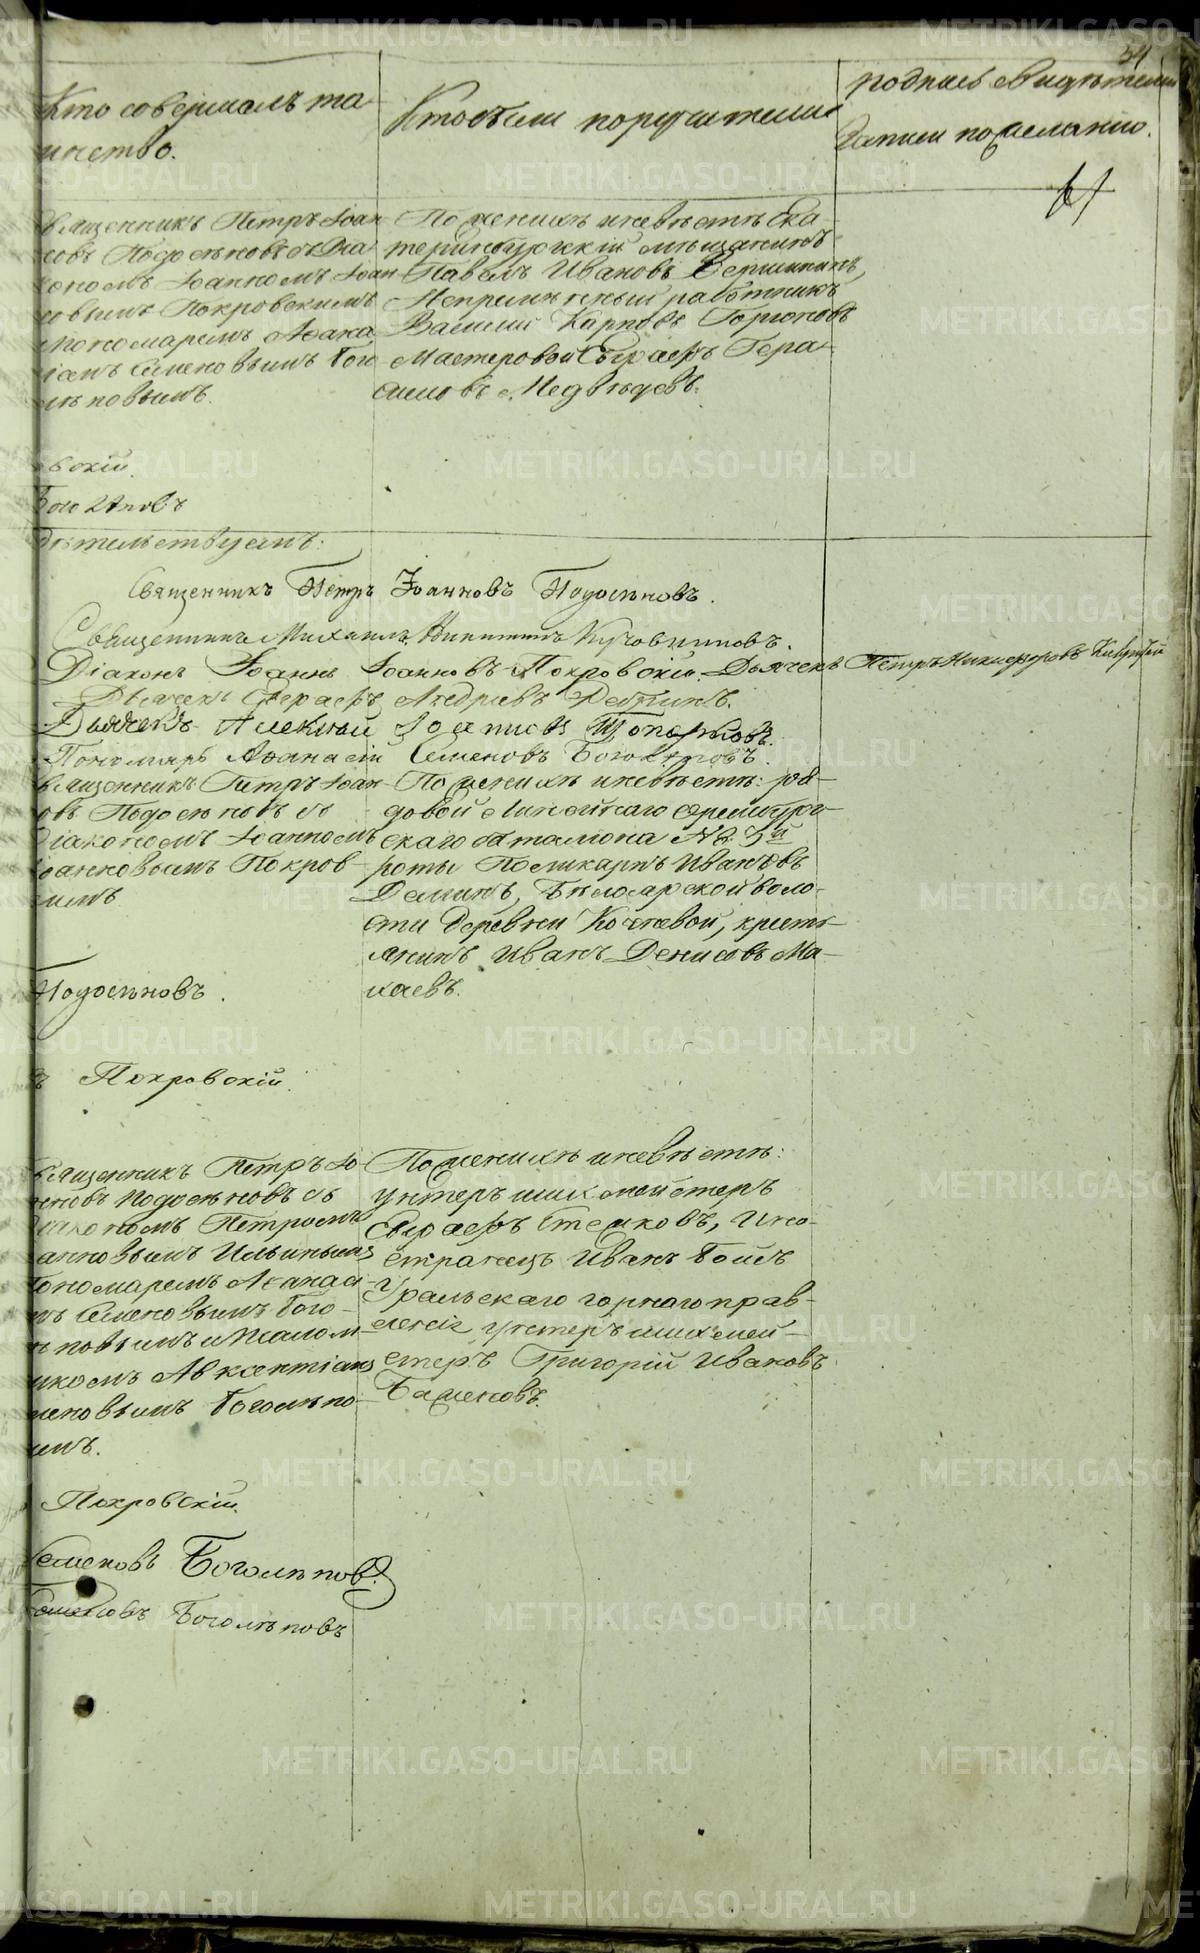 54
Кто совершалъ та-
инство.
Кто были поручители
подпись свидѣтелей
записи по желанію.
Священникъ Петръ Іоан-
новъ Подосѣновъ съ Діа-
кономъ Іоанномъ Іоан-
новымъ Покровскимъ
Пономаремъ Аѳана-
сіемъ Семеновымъ Бого-
лѣповымъ.
По женихѣ и невѣстѣ: Ека-
теринбургскій мѣщанинъ
Павелъ Ивановъ
Непремѣнный работникъ
Василій Карповъ Горюновъ
Мастеровой Сергѣй Гера-
симовъ Медвѣдевъ.
вскій
Боголѣповъ
дѣтельствуемъ:
Священникъ Петръ Іоанновъ Подосѣновъ.
Священникъ Михаилъ Никитинъ
Діаконъ Іоаннъ Іоанновъ Покровскій. Дьячекъ Петръ Никифоровъ
Дьячекъ Андреевъ
Дьячекъ Алексѣй Топорковъ.
Пономарь Аѳанасій Семеновъ Боголѣповъ.
Священникъ Петръ Іоан-
овъ Подосѣновъ съ
Діакономъ Іоанномъ
Іоанновымъ Покров-
скимъ
По женихѣ и невѣстѣ: ря-
довой Линейнаго Оренбург-
скаго баталіона №
роты Поликарпъ Ивановъ
Деминъ, Бѣлоярской воло-
сти деревни Кочневой, кресть-
янинъ Иванъ Денисовъ Ма-
каевъ.
Подосѣновъ.
ъ Покровскій.
Священникъ Петръ Іо-
анновъ Подосѣновъ съ
Діакономъ Петромъ
анновымъ Ильинымъ
Пономаремъ Аѳанасі-
мъ Семеновымъ Бого-
лѣповымъ и
Авксентіемъ
Семеновымъ Боголѣпо-
вымъ.
По женихѣ и невѣстѣ:
унтеръ шихтмейстеръ
Сергѣй Стешковъ, Ино-
странецъ Иванъ Бойль
Уральскаго горнаго прав-
ленія унтеръ шихтмей-
стеръ Григорій Ивановъ
Баженовъ.
Покровскій
Семеновъ Боголѣповъ.
Семеновъ Боголѣповъ
METRIKI.GASO-URAL.RU